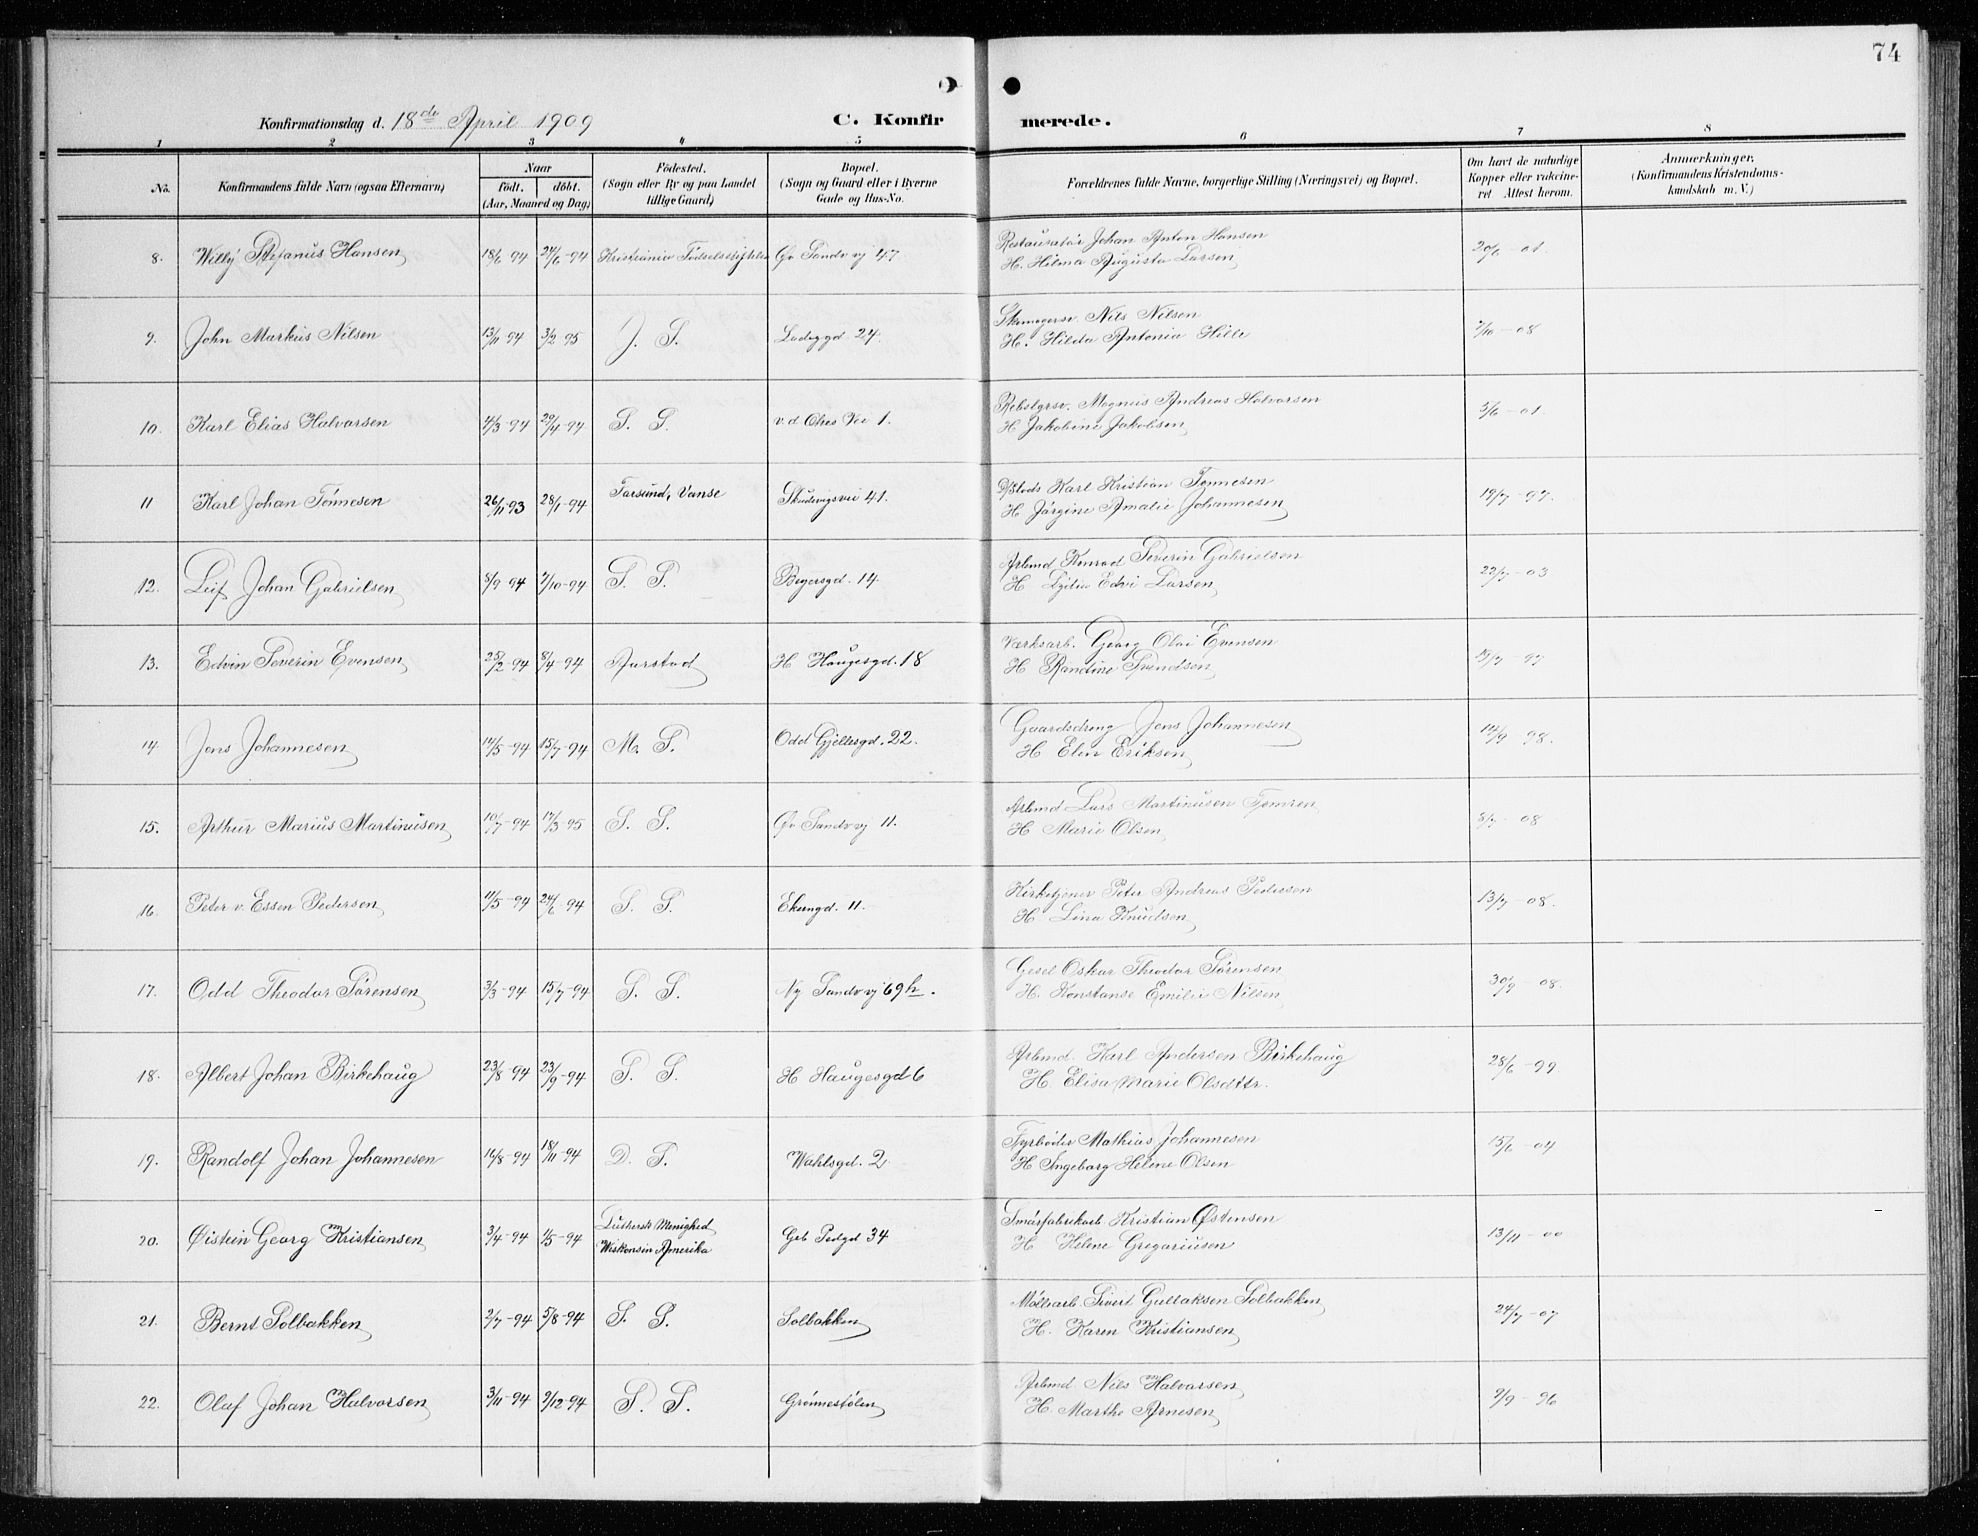 74
Konfirmationsdag d. 18de April 1909 C. Konfirmerede.
1 2 3 4 5 6 7 8
No. Konfirmandens fulde Navn (ogsaa Efternavn) Naar født. døbt. (Aar, Maaned og Dag) Fødested. (Sogn eller By og paa Landet tillige Gaard) Bopæl. (Sogn og Gaard eller i Byerne Gade og Hus-No. Forældrenes fulde Navne, borgerlige Stilling (Næringsvei) og Bopæl. Om havt de naturlige Kopper eller vakcineret Attest herom. Anmærkninger. (Konfirmandens Kristendomskundskab m. V.)
8. Willy Stefanus Hansen 18/6 94 24/6-94 Kristiania Fødselsstiftelse Øv Sandv vj 47 Restauratør Johan Anton Hansen
H. Hilma Augusta Larsen 20/6-01.
9. John Markus Nilsen 13/11 94 3/2 95 J. S. Ladeggd 24. Skomagersv. Nils Nilsen
H. Hilda Antonia Hille 2/10-08
10. Karl Elias Halvorsen 4/3-94 29/4-94 S. S. v. d Ohes Vei 1. Rebslgrsv. Magnus Andreas Halvorsen
H Jakobine Jakobsen 5/6-01.
11 Karl Johan Tønnesen 26/11-93 28/1-94 Farsund, Vanse Skudevigsvei 41. Karl Kristian Tønnesen
H Jørgine Amalie Johannesen 19/7-97.
12. Leif Johan Gabrielsen 8/9 94 7/10-94 S. S. Beyersgd. 14 Arbmd Konrad Severin Gabrielsen
H Edvi Larsen 22/7-03
13. Edvin Severin Evensen 25/2-94 8/4-94 Aarstad H Haugesgd. 18 Værksarb. Georg Olai Evensen
H Randine Svendsen 19/7-97
14. Jens Johannesen 14/5-94 15/7-94 M. S. Odd Gjellesgd. 22. Gaardsdreng Jens Johannesen
H Elen Eriksen 14/9 98.
15. Arthur Marius Martinusen 10/7-94 17/3-95 S. S. Øv Sandv vj 11. Arbmd Lars Martinusen
H Marie Olsen 8/7-08
16. Peter v. Essen Pedersen 11/5-94 24/6 94 S. S. Ekengd. 11. Kirketjener Peter Andreas Pedersen
H Lina Knudsen 13/7-08.
17. Odd Theodor Sørensen 3/3-94 15/7-94 S. S. Ny Sandv vj 69h. Gesel Oskar Theodor Sørensen
H. Konstanse Emilie Nilsen 30/9-08.
18. Albert Johan Birkehaug 23/8-94 23/9-94 S. S. H Haugesgd 6 Arbmd. Karl Andersen Birkehaug
H. Elisa Marie Olsdttr. 28/6-99
19. Randolf Johan Johannesen 16/8-94 18/11-94 D. S. Wahlsgd. 2. Fyrbøder Mathias Johannesen
H Ingeborg Helene Olsen 15/6-04
20. Øistein Georg Kristiansen 3/4-94 1/5-94 Luthersk Menighed
Wiskonsin Amerika Geb Pedgd 34 Smørfabrikarb. Kristian Østensen
H Helene Gregoriusen 13/11-00
21. Bernt Solbakken 2/7-94 5/8-94 S. S. Solbakken Møllearb. Sivert Gullaksen Solbakken
H. Karen Kristiansen 24/7-07
22. Olaf Johan Halvorsen 3/11-94 9/12-94 S. S. Grønnestølen Arbmd. Nils Halvorsen
H. Marthe Arnesen 7/9-96